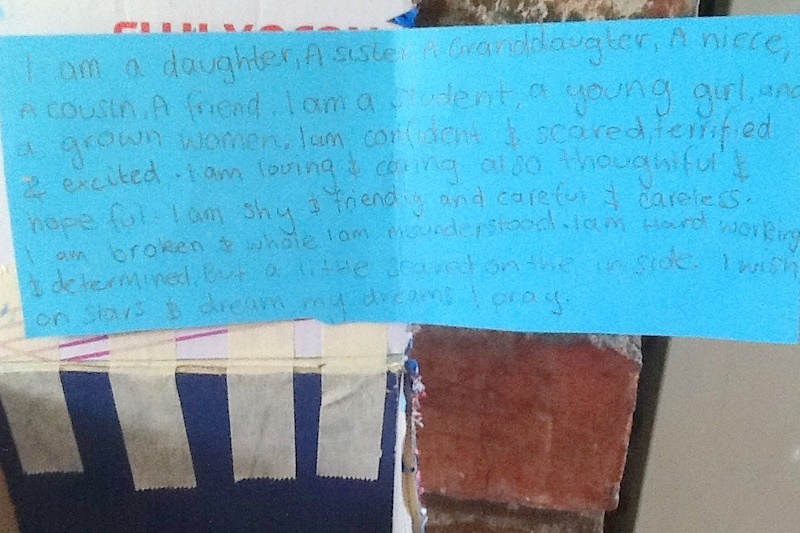 I am a daughter, A sister A Granddaugter, A niece,
A cousin, A friend. I am a student, a young girl, and
a grown women. I am confident & scared, terrified
& excited. I am loving & caring also thoughtful &
hope ful. I am shy & friendly and careful & careless.
I am broken & whole I am misunderstood. I am Hard working
& determined, But a little scared on the in side. I wish
on stars & dream my dreams I pray.